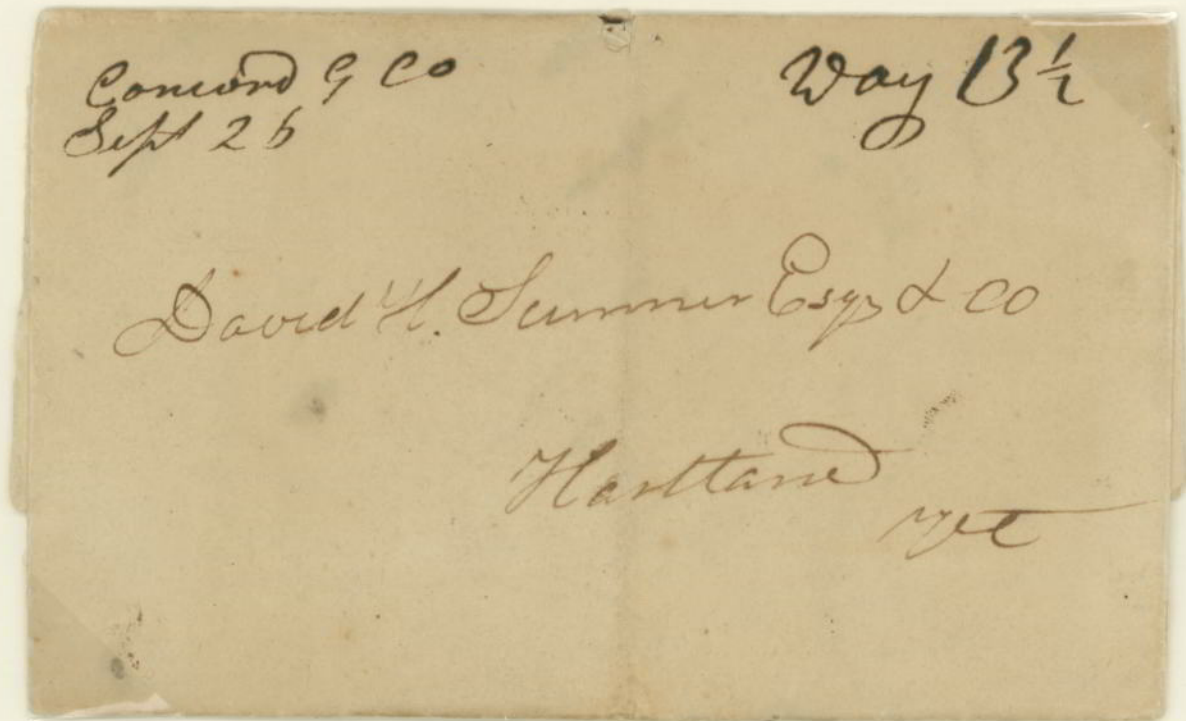 Concord G Co
Sept 26
Way 13½
David H. Sumner Esqr & Co
Hartland